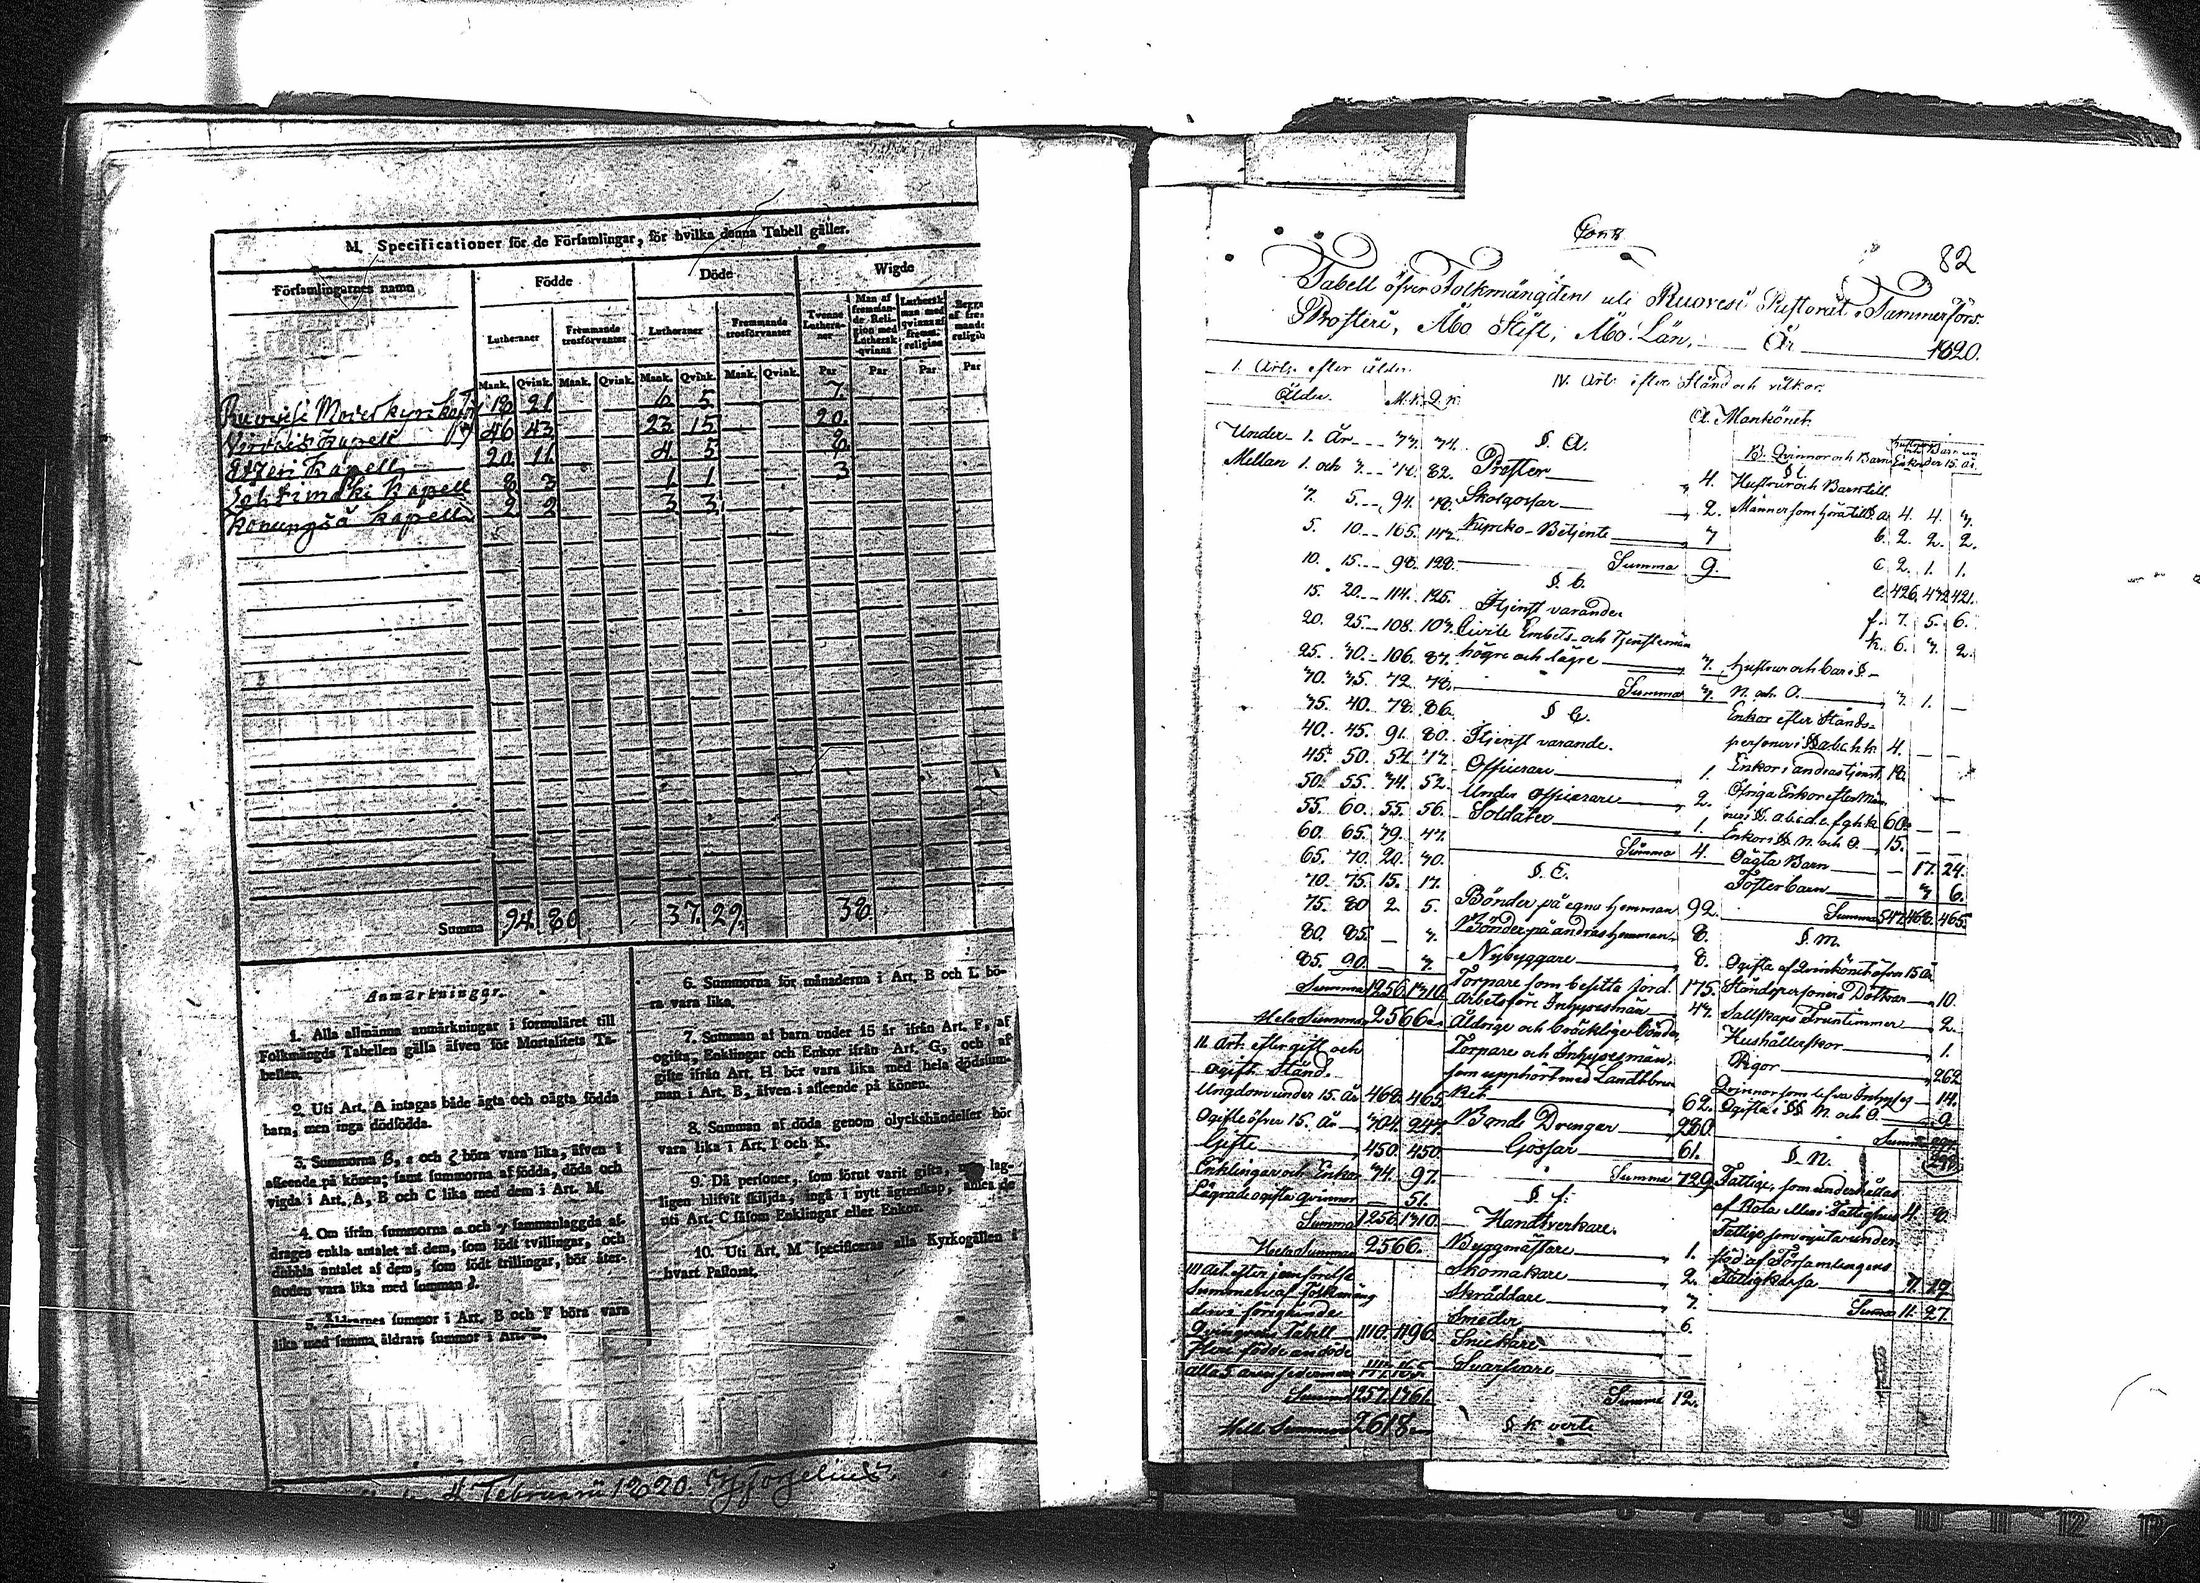 M. Specificationer för de Församlingar, för hvilka denna Tabell gäller.
Församlingarnes namn
Födde
Döde
Wigde
Lutheraner
Främmande trosförvanter
Lutheraner
Främmande trosförvanter
Tvenne Lutheraner
Man af främmande Religion med Luthersk qvinna
Luthersk man med qvinna af främ. religion
Mank. Qvink. Mank. Qvink. Mank. Qvink. Mank. Qvink. Par Par Par Par
Ruovesi Moderkyrka 18 21 6 5 7.
Virdois Kapell 46 43 23 15 20.
Etzeri Kapell 20 11 4 5 8
8 3 1 1 3
Kapell 2 2 3 3
Summa 94. 80 37. 29. 38.
Anmärkningar.
1. Alla allmänna anmärkningar i formuläret till
Folkmängds Tabellen gälla äfven för Mortalitets Ta-
bellen.
2. Uti Art. A intagas både ägta och oägta födda
barn, men inga dödfödda.
3. Summorna β, ε och ζ böra vara lika, äfven i
afseende på könen; samt summorna af födda, döda och
vigda i Art. A, B och C lika med dem i Art. M.
4. Om ifrån summorna α och γ sammanlaggda af-
drages enkla antalet af dem, som födt tvillingar, och
dubbla antalet af dem, som födt trillingar, bör åter-
stoden vara lika med summan δ.
5. Åldrarnes summor i Art. B och F böra vara
lika med samma åldrars summor i Art.
6. Summorna för månaderna i Art. B och L bö-
ra vara lika.
7. Summan af barn under 15 år ifrån Art. F, af
ogifta, Enklingar och Enkor ifrån Art. G, och af
gifte ifrån Art. H bör vara lika med hela dödssum-
man i Art. B, äfven i afseende på könen.
8. Summan af döda genom olyckshändelser bör
vara lika i Art. I och K.
9. Då personer, som förut varit gifta, men lag-
ligen blifvit skiljda, ingå i nytt ägtenskap, anses de
uti Art. C såsom Enklingar eller Enkor.
10. Uti Art. M specificeras alla Kyrkogällen i
hvart Pastorat.
4 Februarii 1820.
82
Tabell öfver Folkmängden uti Ruovesi Pastorat, Tammerfors
Prosteri, Åbo Stift, Åbo Län, År 1820.
I. Art. efter ålder.
Ålder. M.k. Q.k.
Under 1. År
Mellan 1. och 3. 82.
5. 94. 78.
5. 10. 165.
10. 15. 98. 128.
15. 20. 114. 125.
20. 25. 108. 107.
25. 30. 106. 87.
30. 35. 72. 78.
35. 40. 78. 86.
40. 45. 91. 80.
45. 50. 54.
50. 55. 34. 52.
55. 60. 55. 56.
60. 65. 39. 47.
65. 70. 20. 30.
70. 75. 15. 17.
75. 80 2. 5.
80. 85. — 3.
85. 90. — 3.
Summa 1256. 1310.
Hela Summan 2566
II. Art. efter gift och
ogift Stånd.
Ungdom under 15. År 468. 465.
Ogifte öfver 15. År 304. 247.
Gifte 450. 450.
Enklingar och Enkor 34. 97.
Lägrade ogifta qvinnor — 51.
Summa 1256. 1310.
Hela Summan 2566.
III Art. efter jemförelse
Summan af Folkmäng
den i föregående
Tabell 1110. 1196.
Flere födde än döde
Summa 1257. 1361.
Hela Summan 2618
IV. Art. efter Stånd och vilkor.
A. Mankönet.
§. A.
Prester 4.
Skolgossar 2.
Kyrko-Betjente 3
Summa 9.
§. b.
I tjenst varande
Civile Embets- och Tjenstemän
högre och lägre 3.
Summa 3.
§ C.
I tjenst varande.
Officerare 1.
Under Officerare 2.
Soldater 1.
Summa 4.
§. E.
Bönder på egna Hemman 92.
Bönder på andras Hemman 8.
Nybyggare 8.
Torpare som besitta jord 175.
Arbetsföre Inhysesmän 47.
Åldrige och bräcklige bönder,
Torpare och Inhysesmän,
som upphört med Landtbru
ket 62.
Bonde Drengar 280.
Gossar 61.
Summa 729
§ f.
Handtverkare.
Byggmästare 1.
Skomakare 2.
Skräddare 3.
Smeder 6.
Snickare —
Svarfvare —
Summa 12.
§ K verte
B. Qvinnor och Barn
§ L
Hustrur och Barn till
Männer som höra till §. a. 4. 4. 3.
b. 2. 2. 2.
c. 2. 1. 1.
e. 426.
f. 7. 5. 6.
k. 6. 3. 2.
Hustrur och barn i §
N. och O. 3. 1. —
Enkor efter Stånds-
personer i §§ a.b.c.h.k 4. — —
Enkor i andras tjenst 18.
Öfriga Enkor efter Män
ner i §§. a.b.c.d.e.f.g.h.k 60. — —
Enkor i §§ N. och O. 15. — —
Oägta Barn — 17. 24.
Fosterbarn 3 6.
Summa 547. 468. 465.
§. M.
Ogifta af Qvinkönet öfver 15 år
Ståndspersoners Döttrar 10.
Sällskaps Fruntimmer 2.
Hushållerskor 1.
Pigor 262
Qvinnor som lefva Inhyses 14.
Ogifta i §§ N. och O. 9
Summa
§. N.
Fattige, som underhållas
af Rota eller i Fattighus 4. 8.
Fattige som njuta under-
stöd af Församlingens
Fattigkassa 7. 19.
Summa 11. 27.